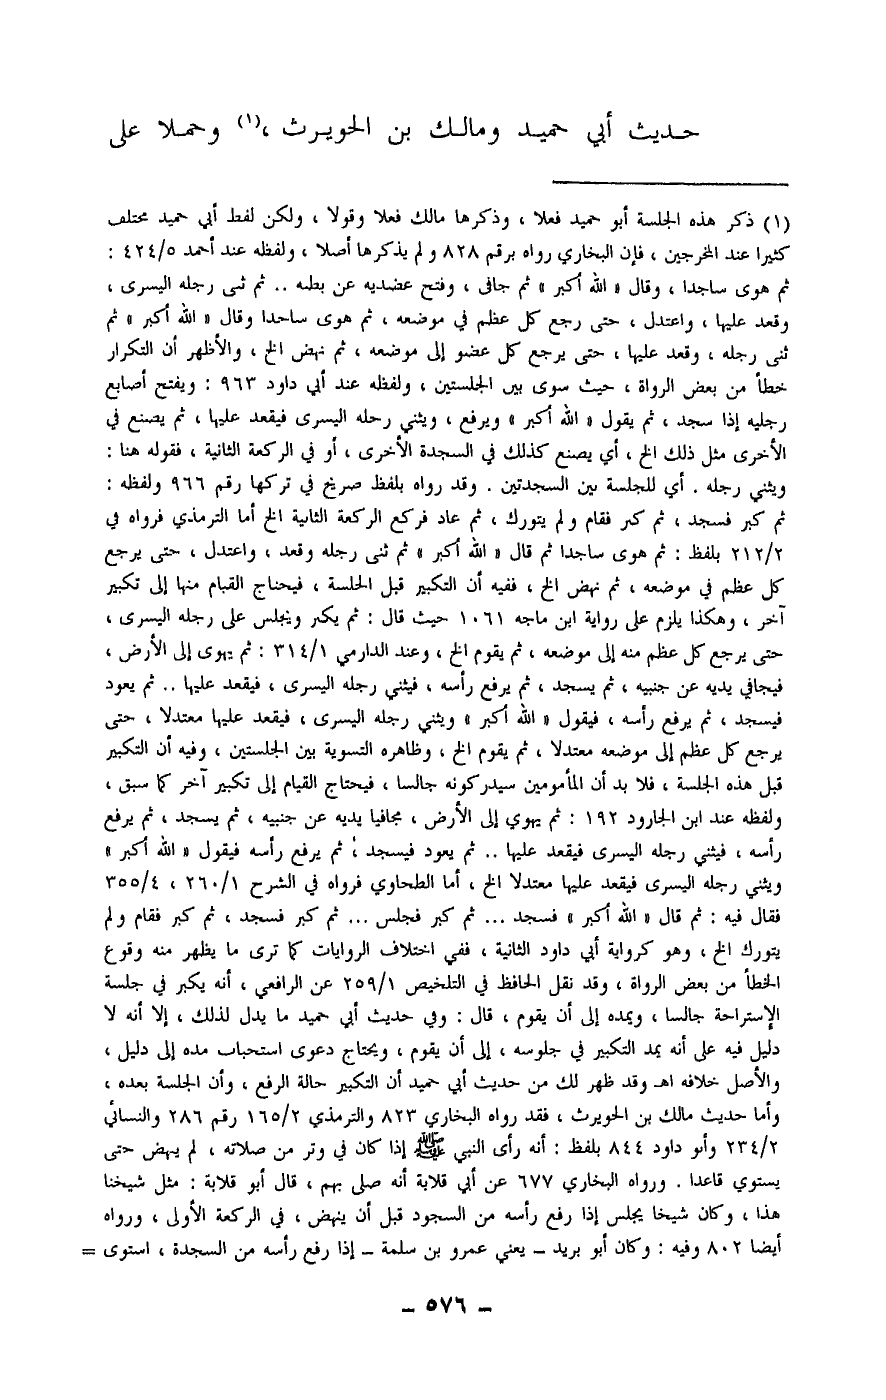 حديث أبي حميد ومالك بن الحويرث ،(١) وحملا على
(١) ذكر هذه الجلسة أبو حميد فعلا ، وذكرها مالك فعلا وقولا ، ولكن لفظ أبي حميد مختلف
كثيرا عند المخرجين ، فإن البخاري رواه برقم ٨٢٨ و لم يذكرها أصلا ، ولفظه عند أحمد ٤٢٤/٥ :
ثم هوى ساجدا ، وقال « الله أكبر » ثم جافى ، وفتح عضديه عن بطنه .. ثم ثنى رجله اليسرى ،
وقعد عليها ، واعتدل ، حتى رجع كل عظم في موضعه ، ثم هوى ساجدا وقال « الله أكبر » ثم
ثنى رجله ، وقعد عليها ، حتى يرجع كل عضو إلى موضعه ، ثم نهض الخ ، والأظهر أن التكرار
خطأ من بعض الرواة ، حيث سوى بين الجلستين ، ولفظه عند أبي داود ٩٦٣ : ويفتح أصابع
رجليه إذا سجد ، ثم يقول « الله أكبر » ويرفع ، ويثني رجله اليسرى فيقعد عليها ، ثم يصنع في
الأخرى مثل ذلك الخ ، أي يصنع كذلك في السجدة الأخرى ، أو في الركعة الثانية ، فقوله هنا :
ويثني رجله . أي للجلسة بين السجدتين . وقد رواه بلفظ صريح في تركها رقم ٩٦٦ ولفظه :
ثم كبر فسجد ، ثم كبر فقام ولم يتورك ، ثم عاد فركع الركعة الثانية الخ أما الترمذي فرواه في
٢١٢/٢ بلفظ : ثم هوى ساجدا ثم قال « الله أكبر » ثم ثنى رجله وقعد ، واعتدل ، حتى يرجع
كل عظم في موضعه ، ثم نهض الخ ، ففيه أن التكبير قبل الجلسة ، فيحتاج القيام منها إلى تكبير
آخر ، وهكذا يلزم على رواية ابن ماجه ١٠٦١ حيث قال : ثم يكبر ويجلس على رجله اليسرى ،
حتى يرجع كل عظم منه إلى موضعه ، ثم يقوم الخ ، وعند الدارمي ٣١٤/١ : ثم يهوى إلى الأرض ،
فيجافي يديه عن جنبيه ، ثم يسجد ، ثم يرفع رأسه ، فيثني رجله اليسرى ، فيقعد عليها .. ثم يعود
فيسجد ، ثم يرفع رأسه ، فيقول « الله أكبر » ويثني رجله اليسرى ، فيقعد عليها معتدلا ، حتى
يرجع كل عظم إلى موضعه معتدلا ، ثم يقوم الخ ، وظاهره التسوية بين الجلستين ، وفيه أن التكبير
قبل هذه الجلسة ، فلا بد أن المأمومين سيدركونه جالسا ، فيحتاج القيام إلى تكبير آخر كما سبق ،
ولفظه عند ابن الجارود ١٩٢ : ثم يهوي إلى الأرض ، مجافيا يديه عن جنبيه ، ثم يسجد ، ثم يرفع
رأسه ، فيثني رجله اليسرى فيقعد عليها .. ثم يعود فيسجد ، ثم يرفع رأسه فيقول « الله أكبر »
ويثني رجله اليسرى فيقعد عليها معتدلا الخ ، أما الطحاوي فرواه في الشرح ٢٦٠/١ ، ٣٥٥/٤
فقال فيه : ثم قال « الله أكبر » فسجد ... ثم كبر فجلس ... ثم كبر فسجد ، ثم كبر فقام ولم
يتورك الخ ، وهو كرواية أبي داود الثانية ، ففي اختلاف الروايات كما ترى ما يظهر منه وقوع
الخطأ من بعض الرواة ، وقد نقل الحافظ في التلخيص ٢٥٩/١ عن الرافعي ، أنه يكبر في جلسة
الإستراحة جالسا ، ويمده إلى أن يقوم ، قال : وفي حديث أبي حميد ما يدل لذلك ، إلا أنه لا
دليل فيه على أنه يمد التكبير في جلوسه ، إلى أن يقوم ، ويحتاج دعوى استحباب مده إلى دليل ،
والأصل خلافه اهـ وقد ظهر لك من حديث أبي حميد أن التكبير حالة الرفع ، وأن الجلسة بعده ،
وأما حديث مالك بن الحويرث ، فقد رواه البخاري ٨٢٣ والترمذي ١٦٥/٢ رقم ٢٨٦ والنسائي
٢٣٤/٢ وأبو داود ٨٤٤ بلفظ : أنه رأى النبي ﷺ إذا كان في وتر من صلاته ، لم ينهض حتى
يستوي قاعدا . ورواه البخاري ٦٧٧ عن أبي قلابة أنه صلى بهم ، قال أبو قلابة : مثل شيخنا
هذا ، وكان شيخا يجلس إذا رفع رأسه من السجود قبل أن ينهض ، في الركعة الأولى ، ورواه
أيضا ٨٠٢ وفيه : وكان أبو بريد ــ يعني عمرو بن سلمة ــ إذا رفع رأسه من السجدة ، استوى =
ــ ٥٧٦ ــ